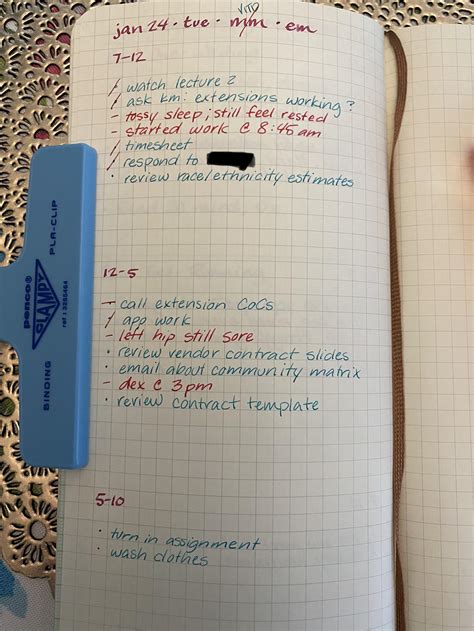 VITD
jan 24 · tue · m/m · em
7-12
/ watch lecture 2
/ ask km: extensions working?
- tossy sleep; still feel rested
- started work @ 8:45am
/ timesheet
/ respond to
· review race/ethnicity estimates
12-5
- call extension CoCs
/ app work
- left hip still sore
· review vendor contract slides
· email about community matrix
- dex @ 3pm
· review contract template
5-10
· turn in assignment
· wash clothes
PLA-CLIP
penco®
CLAMPY
BINDING